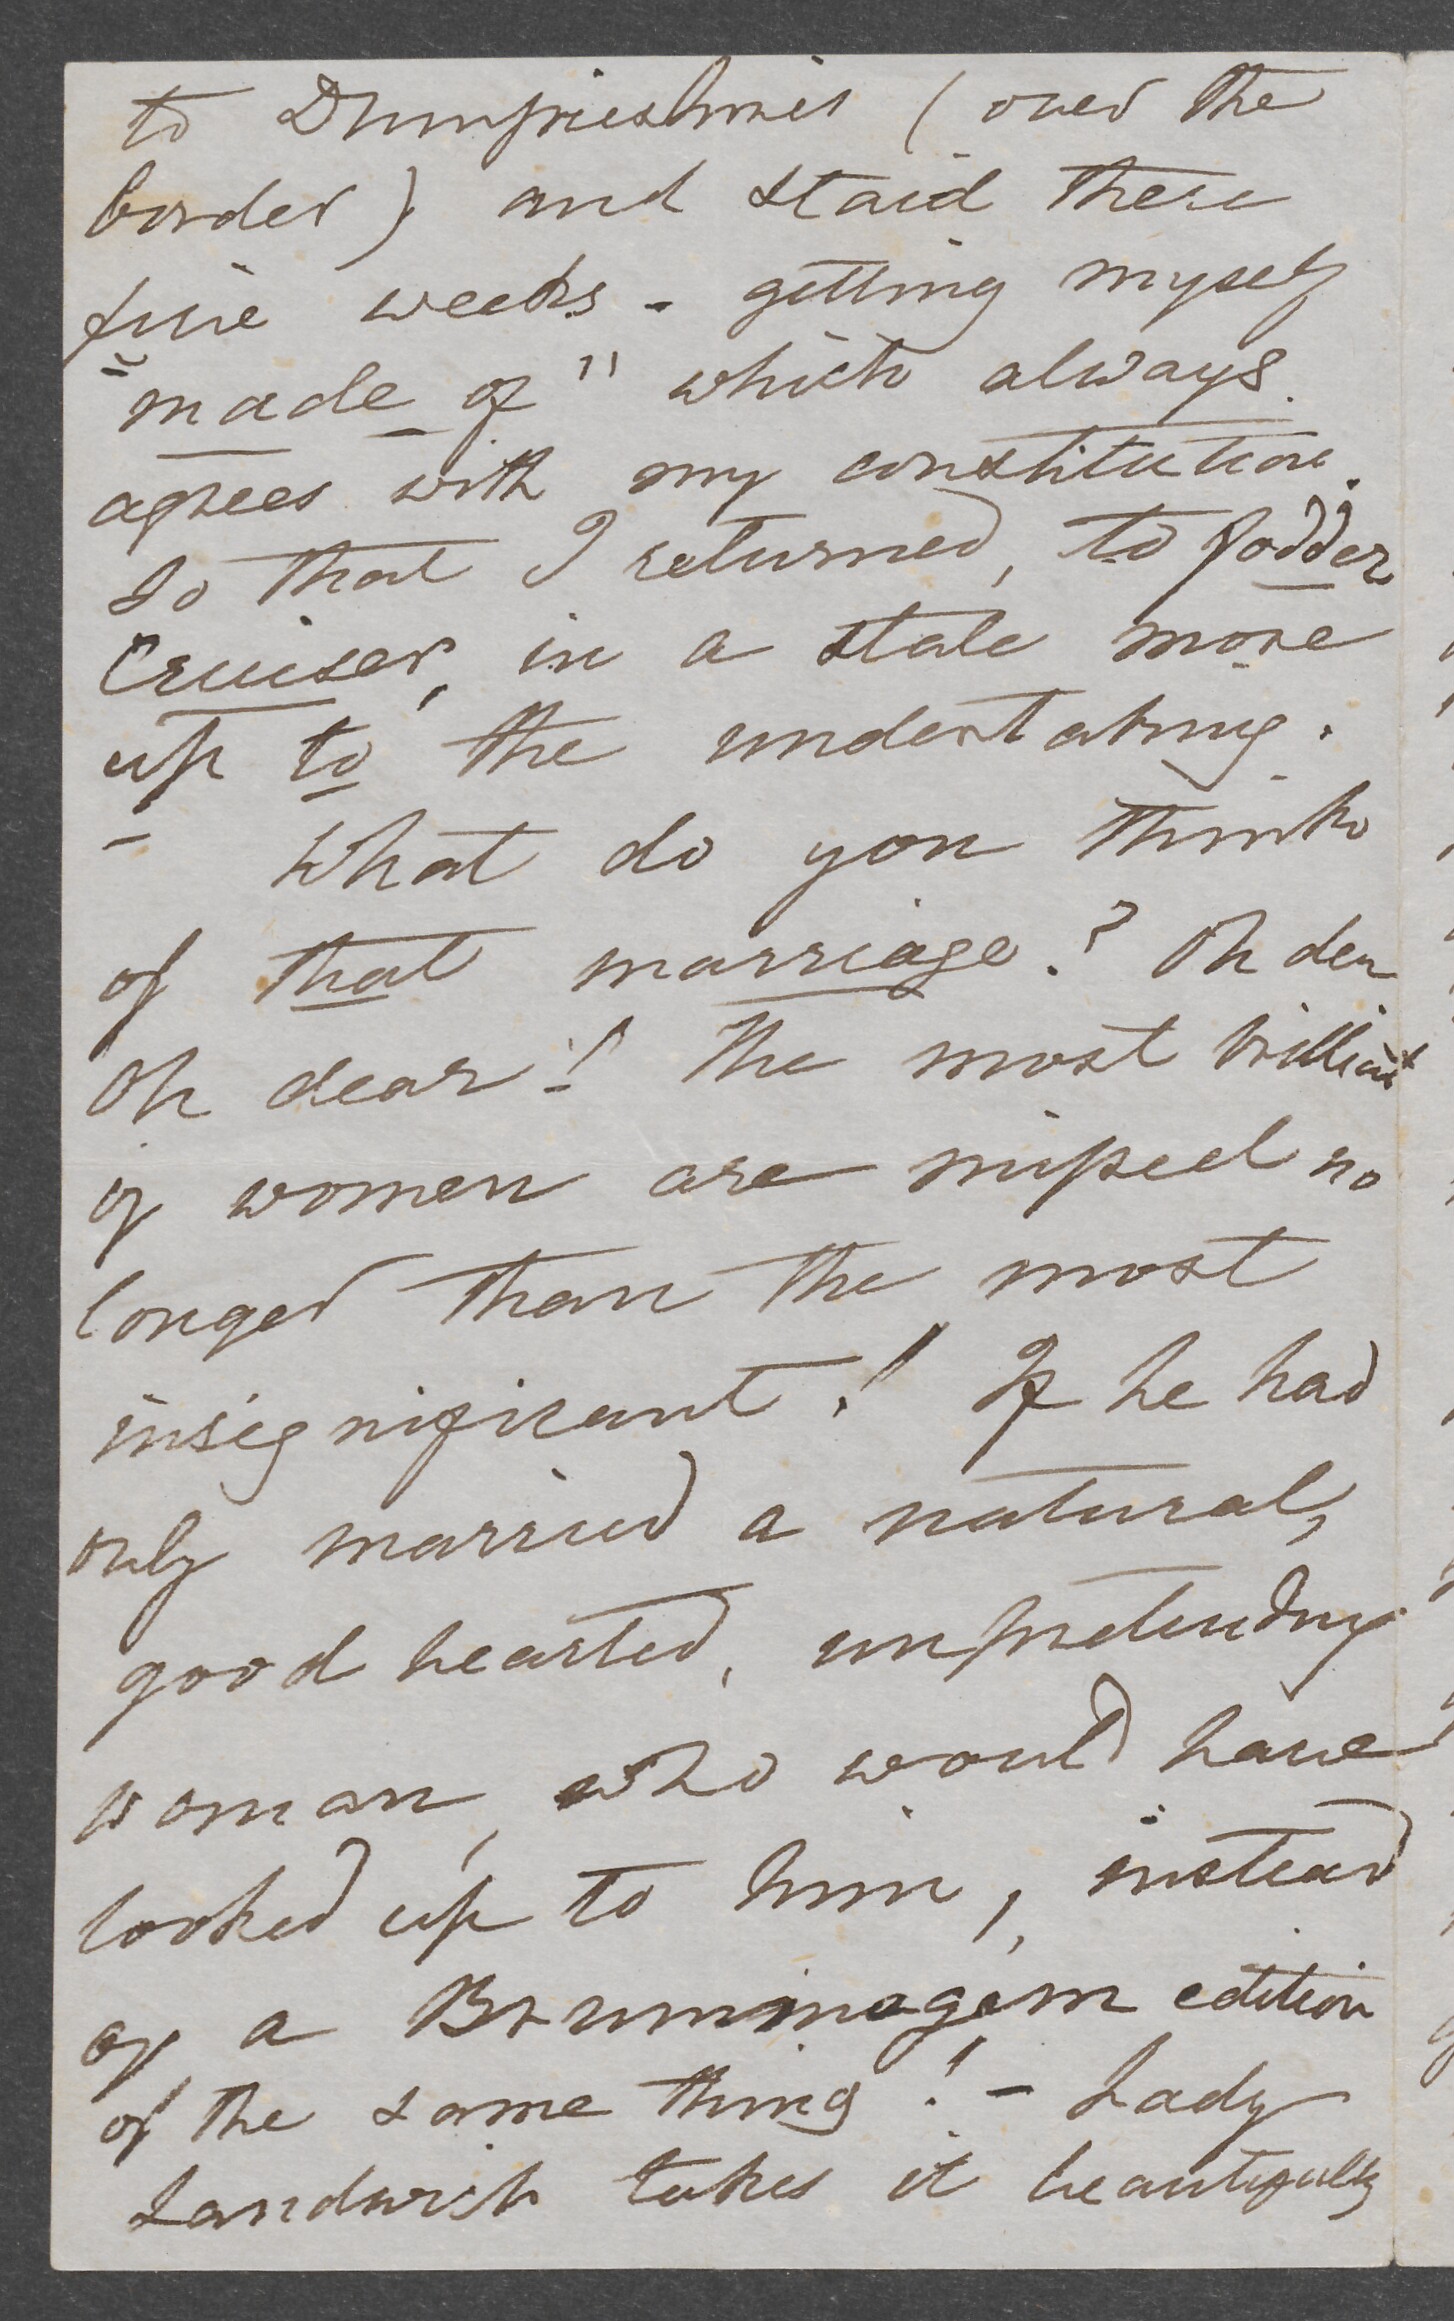 to Dumfriesshire (over the
border) and staid there
five weeks - getting myself
"made of" which always
agrees with my constitution.
So that I returned, to fodder
Cruiser, in a state more
up to the undertaking.
- What do you think
of that marriage? Oh dear
Oh dear! The most brilliant
of women are missed no
longer than the most
insignificant! If he had
only married a natural,
good hearted, unpretending
woman, who would have
looked up to him, instead
of a Brummagem edition
of the same thing! - Lady
Sandwich takes it beautifully